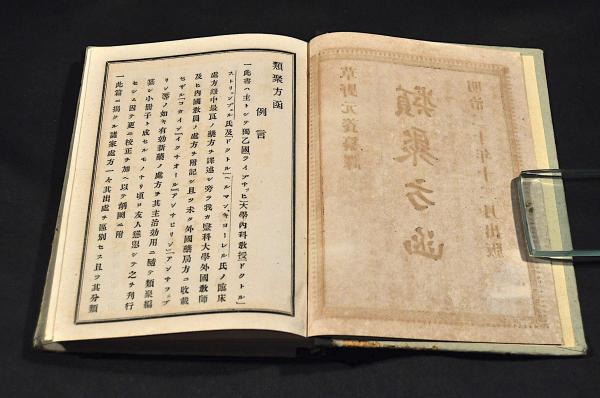 明治 十年十 月出版
類聚方函
草野元資纂譯
類聚方函
例言
一此書ハ主トシテ獨乙國ライプチヒ大學内科教授ドクトル」
ストリュンプル氏及ドクトル」ヘルマン、キョーレル氏ノ臨床
處方錄中最良ノ藥方ヲ譯述シ旁ラ我カ醫科大學外國教師
及ヒ内國教員ノ處方ヲ附記シ且ツ未タ外國藥局方ニ收載
セザル「コカイン」「イクチオール」「アンチピリン」「アンチフェブ
リン」等ノ如キ有効新藥ノ處方ヲ其主治効用ニ隨テ類聚編
纂シ小册子ト成セルモノナリ頃日友人慫慂シテ之ヲ刊行
セシム因テ更ニ校正ヲ加ヘ以テ剞劂ニ附
一此篇ニ揭クル諸家處方一々其出處ヲ區別セス且ツ其分類